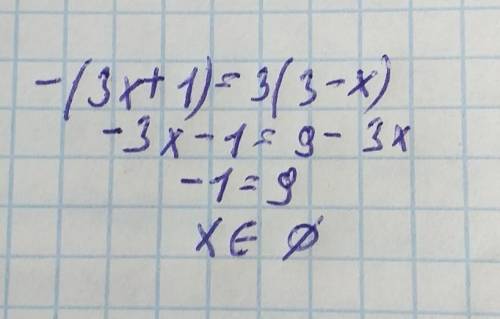 -(3x+1)=3(3-x)
-3x-1=9-3x
-1=9
x∈ ∅